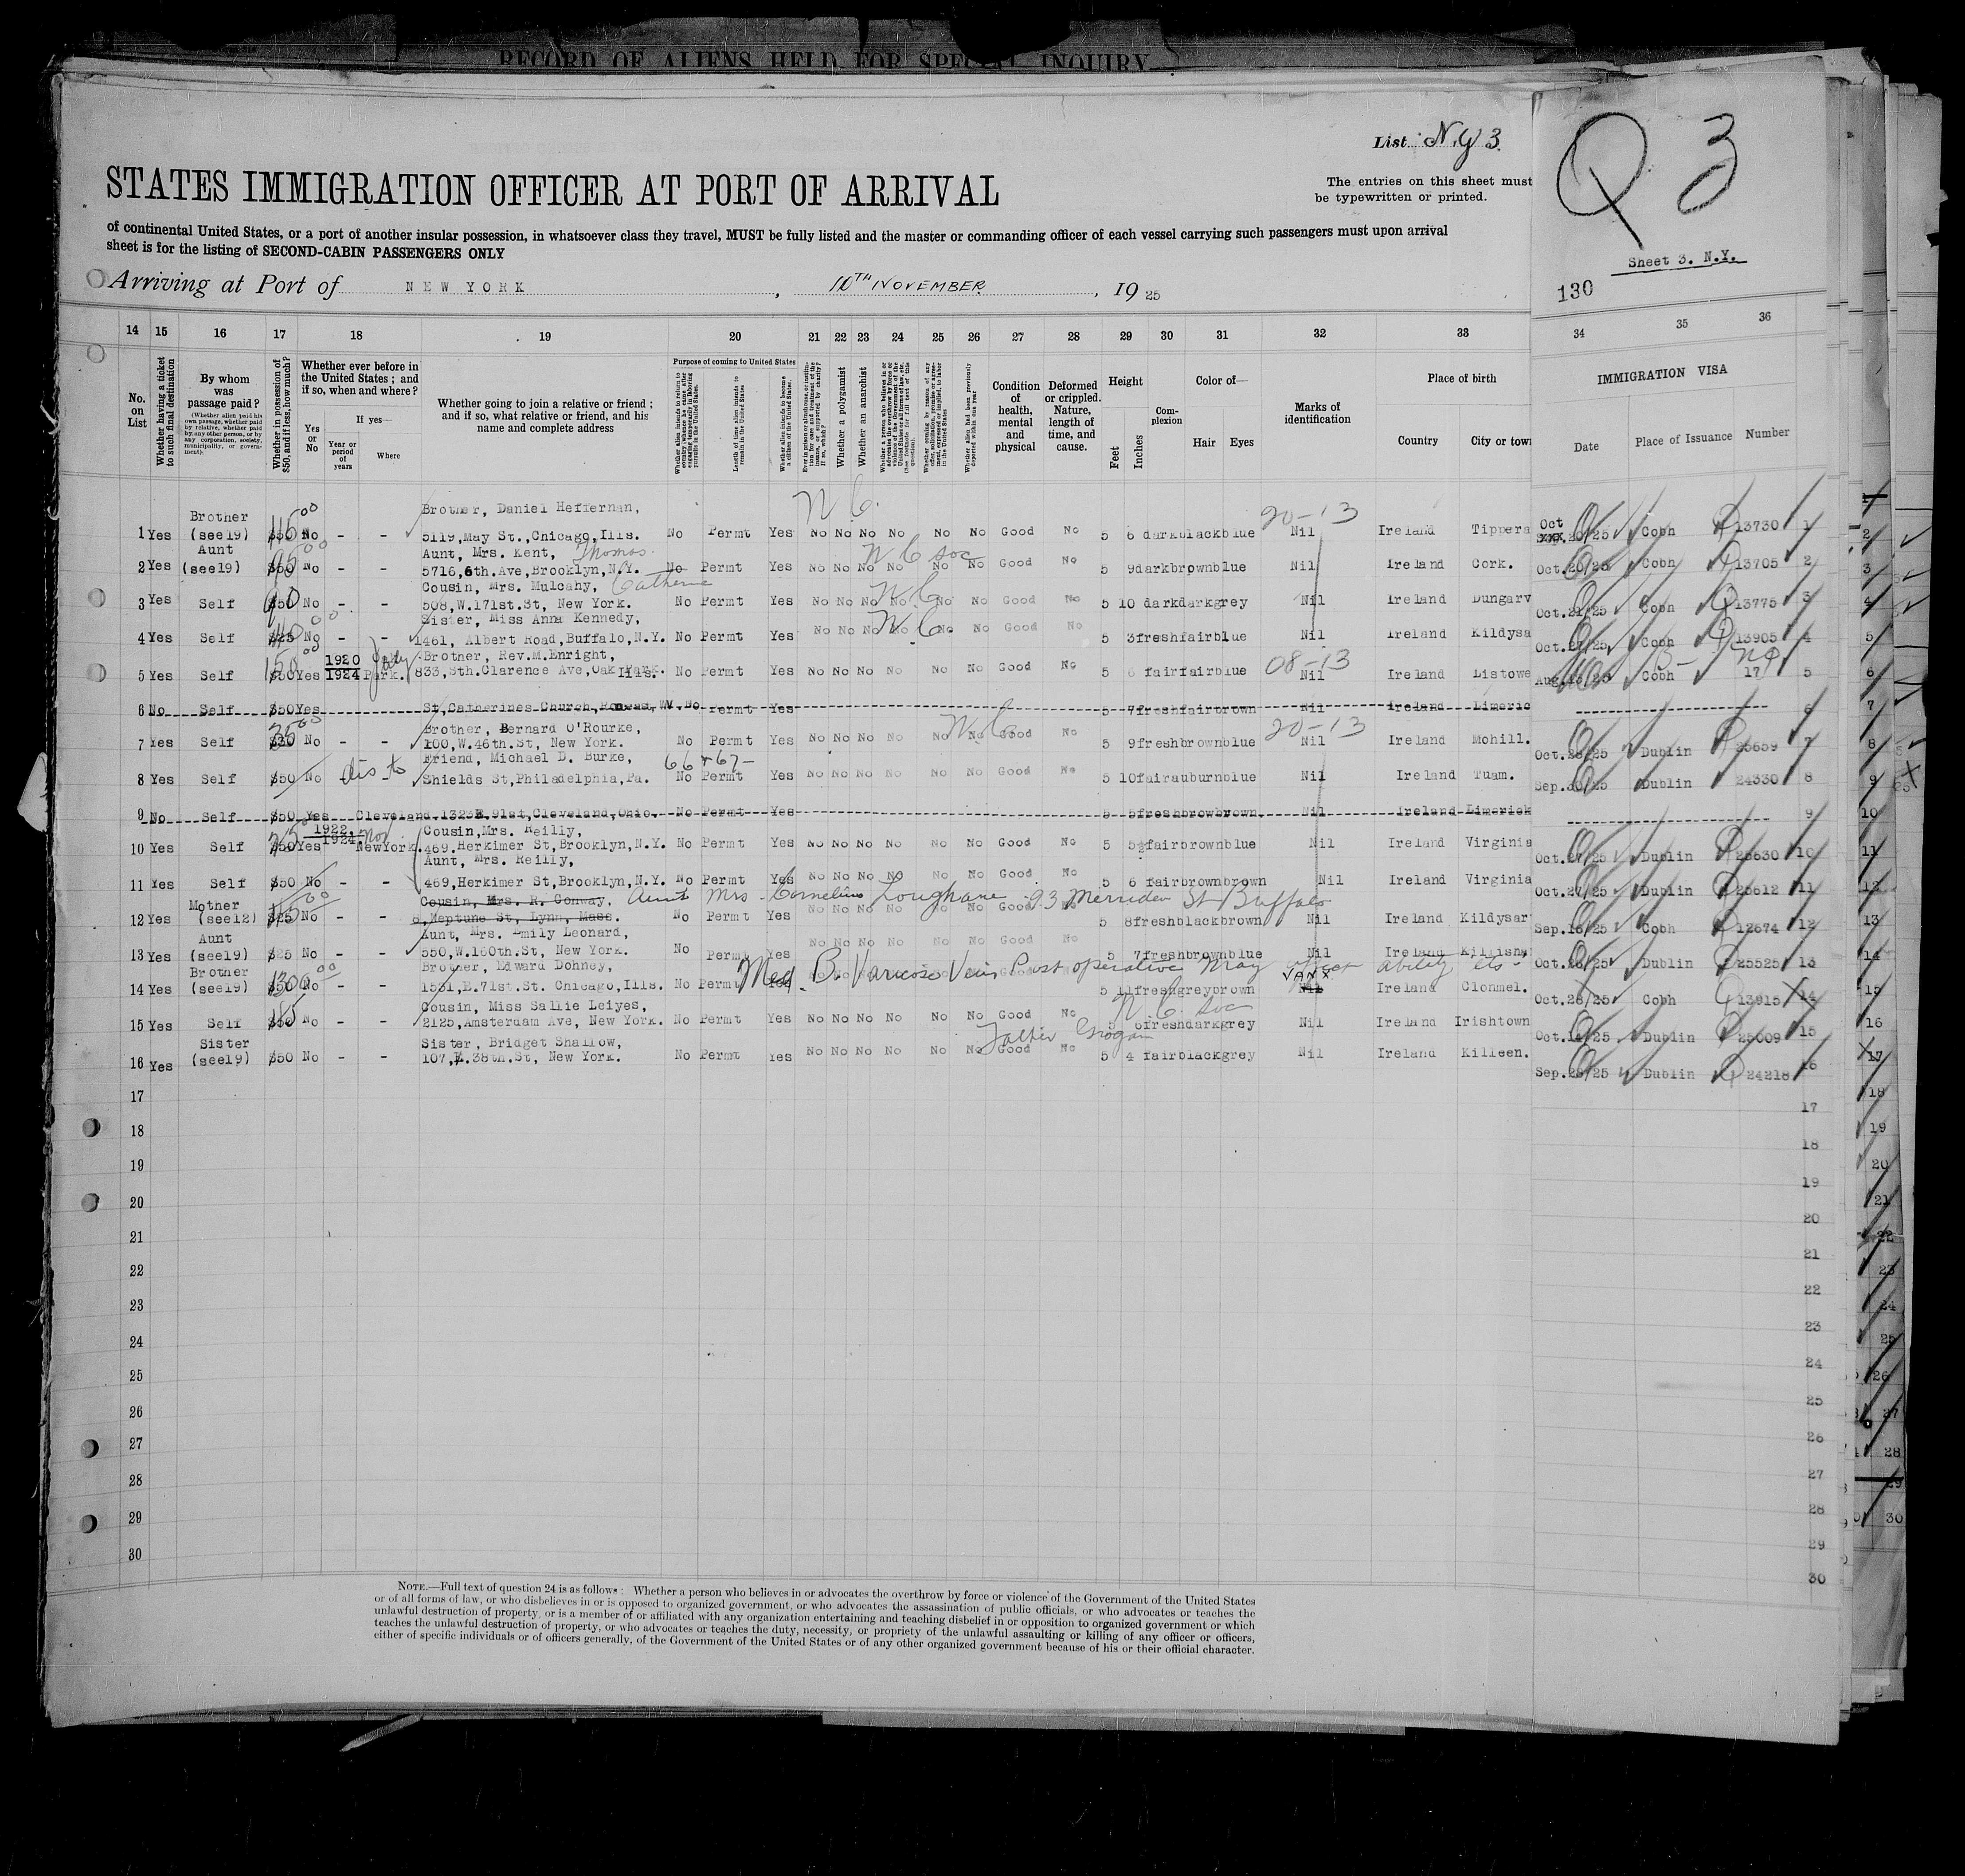 RECORD OF ALIENS HELD FOR SPECIAL INQUIRY
List N.Y 3.
Q 3
STATES IMMIGRATION OFFICER AT PORT OF ARRIVAL
The entries on this sheet must
be typewritten or printed.
of continental United States, or a port of another insular possession, in whatsoever class they travel, MUST be fully listed and the master or commanding officer of each vessel carrying such passengers must upon arrival
sheet is for the listing of SECOND-CABIN PASSENGERS ONLY
Sheet 3. N.Y.
Arriving at Port of NEW YORK , 10TH NOVEMBER , 19 25
130
14 15 16 17 18 19 20 21 22 23 24 25 26 27 28 29 30 31 32 33 34 35 36
No. on List
Whether having a ticket to such final destination
By whom was passage paid?
(Whether alien paid his own passage, whether paid by relative, whether paid by any other person, or by any corporation, society, municipality, or government)
Whether in possession of $50, and if less, how much?
Whether ever before in the United States; and if so, when and where?
Yes or No
If yes—
Year or period of years
Where
Whether going to join a relative or friend; and if so, what relative or friend, and his name and complete address
Purpose of coming to United States
Length of time alien intends to remain in the United States
Whether alien intends to become a citizen of the United States.
Whether a polygamist
Whether an anarchist
Condition of health, mental and physical
Deformed or crippled. Nature, length of time, and cause.
Height
Feet
Inches
Complexion
Color of—
Hair Eyes
Marks of identification
Place of birth
Country City or town
IMMIGRATION VISA
Date Place of Issuance Number
N C
20-13
Brother Brother, Daniel Heffernan,
1 Yes (see19) $50 No - - 5119,May St.,Chicago,Ills. No Permt Yes No No No No No No Good No 5 6 dark black blue Nil Ireland Tippera Oct 20/25 Cobh 13730 1
Aunt Aunt, Mrs. Kent, Thomas N C soc
2 Yes (see19) $50 No - - 5716,6th.Ave,Brooklyn,N.Y. No Permt Yes No No No No No No Good No 5 9 dark brown blue Nil Ireland Cork. Oct.20/25 Cobh 13705 2
Cousin, Mrs. Mulcahy, Catherine N C
3 Yes Self $50 No - - 508,W.171st.St, New York. No Permt Yes No No No No No No Good No 5 10 dark dark grey Nil Ireland Dungarv Oct.21/25 Cobh 13775 3
Sister, Miss Anna Kennedy, N C
4 Yes Self $25 No - - 1461, Albert Road,Buffalo,N.Y. No Permt Yes No No No No No No Good No 5 3 fresh fair blue Nil Ireland Kildysa Oct.27/25 Cobh 13905 4
Brother, Rev.M.Enright, 08-13
5 Yes Self $50 Yes 1920 1924 Park. 833,Sth.Clarence Ave,Oak Park. Ills. No Permt Yes No No No No No No Good No 5 6 fair fair blue Nil Ireland Listowe Cobh 17 5
6 No Self $50 Yes St,Catherines Church, W.V. No Permt Yes 5 7 fresh fair brown Nil Ireland Limeric 6
Brother, Bernard O'Rourke, N C 20-13
7 Yes Self $50 No - - 100,W.46th.St, New York. No Permt Yes No No No No No No Good No 5 9 fresh brown blue Nil Ireland Mohill. Oct.28/25 Dublin 25659 7
Friend, Michael D. Burke, 66+67-
8 Yes Self $50 No dis to Shields St,Philadelphia,Pa. No Permt Yes No No No No No No Good No 5 10 fair auburn blue Nil Ireland Tuam. Sep.30/25 Dublin 24330 8
9 No Self $50 Yes Cleveland. 1323 E.91st,Cleveland,Ohio. No Permt Yes 5 5 fresh brown brown Nil Ireland Limerick 9
Cousin,Mrs. Reilly,
10 Yes Self $50 Yes 1922 1924 New York. 469.Herkimer St,Brooklyn,N.Y. No Permt Yes No No No No No No Good No 5 5½ fair brown blue Nil Ireland Virginia Oct.27/25 Dublin 25630 10
Aunt, Mrs. Reilly,
11 Yes Self $50 No - - 469,Herkimer St,Brooklyn,N.Y. No Permt Yes No No No No No No Good No 5 6 fair brown brown Nil Ireland Virginia Oct.27/25 Dublin 25612 11
Mother Cousin, Mrs. R. Conway, Aunt Mrs Cornelius Loughane 93 Merriden St Buffalo
12 Yes (see12) $25 No - - 8,Neptune St, Lynn, Mass. No Permt Yes No No No No No No Good No 5 8 fresh black brown Nil Ireland Kildysar Sep.16/25 Cobh 12674 12
Aunt Aunt, Mrs. Emily Leonard,
13 Yes (see19) $25 No - - 550,W.160th.St, New York. No Permt Yes No No No No No No Good No 5 7 fresh brown blue Nil Ireland Dublin 25525 13
Brother Brother, Edward Dohney, Med. B. Varicose Vein, Post operative may affect ability etc-
14 Yes (see19) $50 No - - 1531,E.71st.St. Chicago,Ills. No Permt 5 11 fresh grey brown Nil Ireland Clonmel. Oct.28/25 Cobh 13915 14
Cousin, Miss Sallie Leiyes, N C soc
15 Yes Self $50 No - - 2125,Amsterdam Ave, New York. No Permt Yes No No No No No No Good No 5 6 fresh dark grey Nil Ireland Irishtown Oct.14/25 Dublin 25009 15
Sister Sister, Bridget Shallow, Father Grogan
16 Yes (see19) $50 No 107,E.38th.St, New York. No Permt Yes No No No No No No Good No 5 4 fair black grey Nil Ireland Killeen. Sep.28/25 Dublin 24218 16
17 17
18 18
19 19
20 20
21 21
22 22
23 23
24 24
25 25
26 26
27 27
28 28
29 29
30 30
NOTE.—Full text of question 24 is as follows: Whether a person who believes in or advocates the overthrow by force or violence of the Government of the United States
or of all forms of law, or who disbelieves in or is opposed to organized government, or who advocates the assassination of public officials, or who advocates or teaches the
unlawful destruction of property, or is a member of or affiliated with any organization entertaining and teaching disbelief in or opposition to organized government or which
teaches the unlawful destruction of property, or who advocates or teaches the duty, necessity, or propriety of the unlawful assaulting or killing of any officer or officers,
either of specific individuals or of officers generally, of the Government of the United States or of any other organized government because of his or their official character.